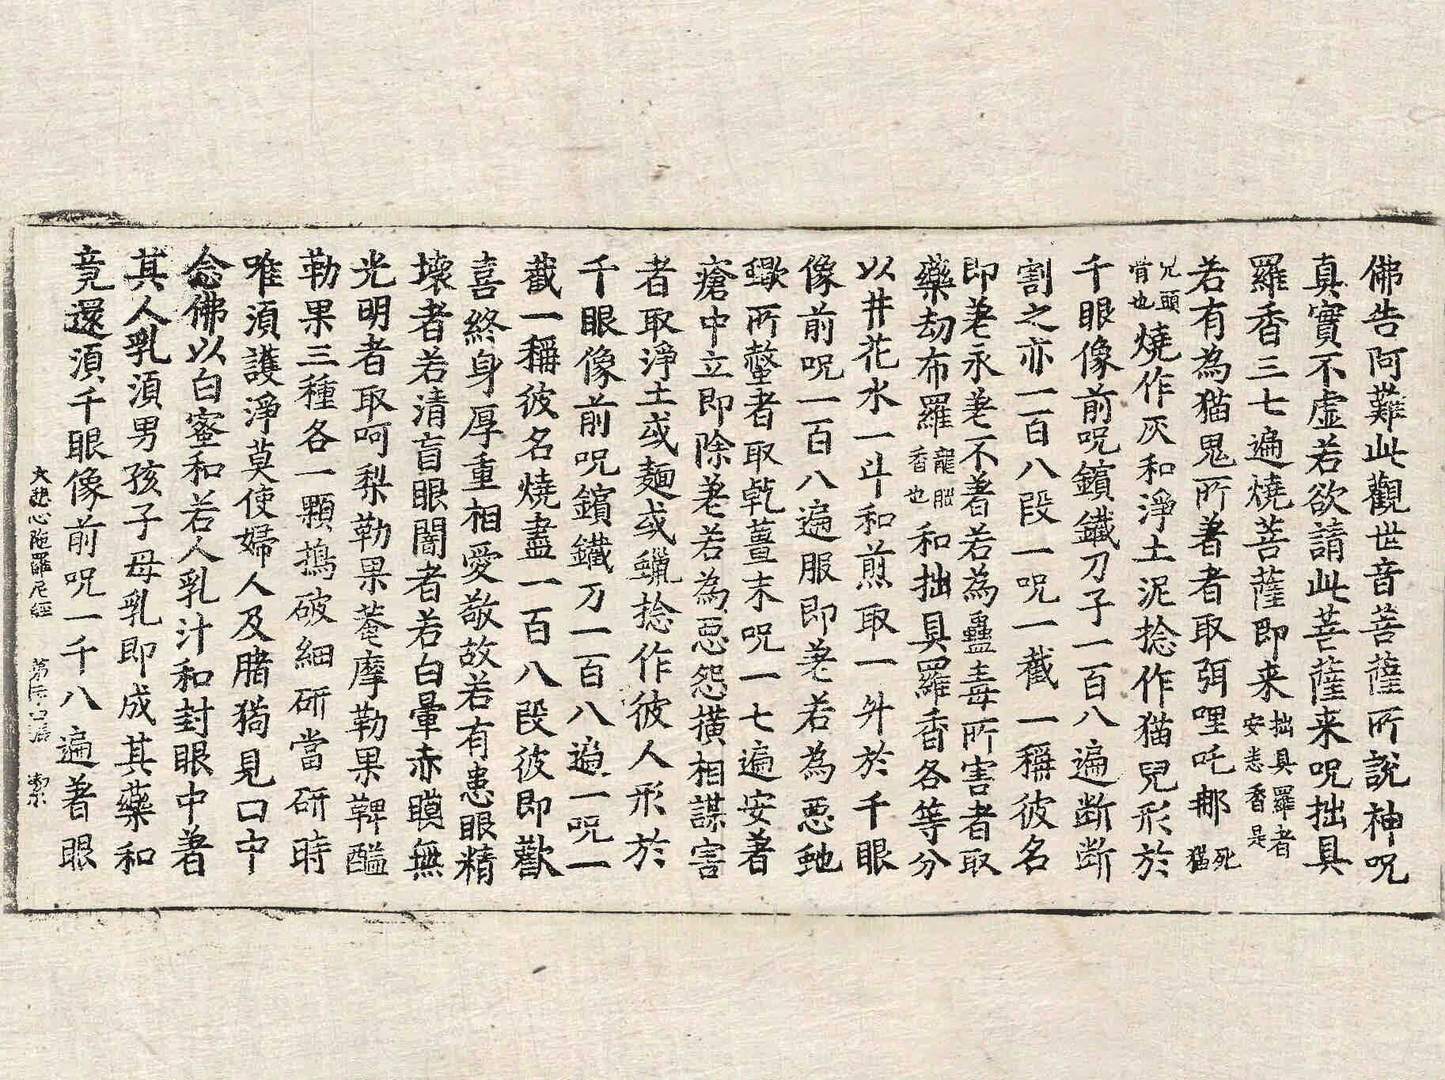 佛告阿難此觀世音菩薩所說神呪
真實不虛若欲請此菩薩来呪拙具
羅香三七遍燒菩薩即来拙具羅者安悉香是
若有為猫鬼所著者取弭哩吒那死猫
兒頭骨也燒作灰和淨土泥捻作猫兒形於
千眼像前呪鑌鐵刀子一百八遍断断
割之亦一百八段一呪一截一稱彼名
即差永差不著若為蠱毒所害者取
藥劫布羅龍腦香也和拙具羅香各等分
以井花水一斗和煎取一升於千眼
像前呪一百八遍服即差若為惡虵
蠍所螫者取乾薑末呪一七遍安著
瘡中立即除差若為惡怨橫相謀害
者取淨土或麵或蠟捻作彼人形於
千眼像前呪鑌鐵刀一百八遍一呪一
截一稱彼名燒盡一百八段彼即歡
喜終身厚重相愛敬故若有患眼精
壞者若清盲眼闇者若白暈赤瞙無
光明者取呵梨勒果菴摩勒果鞞醯
勒果三種各一顆擣破細研當研時
唯湏護淨莫使婦人及腊狗見口中
念佛以白蜜和若人乳汁和封眼中著
其人乳湏男孩子母乳即成其藥和
竟還湏千眼像前呪一千八遍著眼
大悲心陁羅尼經